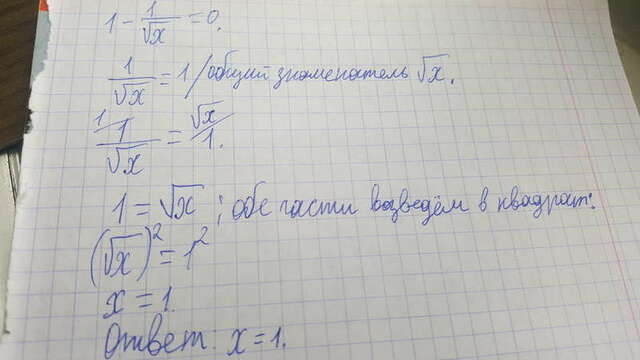 1 - 1/√x = 0.
1/√x = 1 / общий знаменатель √x.
1\1/√x = √x/1.
1 = √x ; обе части возведём в квадрат:
(√x)² = 1²
x = 1.
Ответ: x = 1.